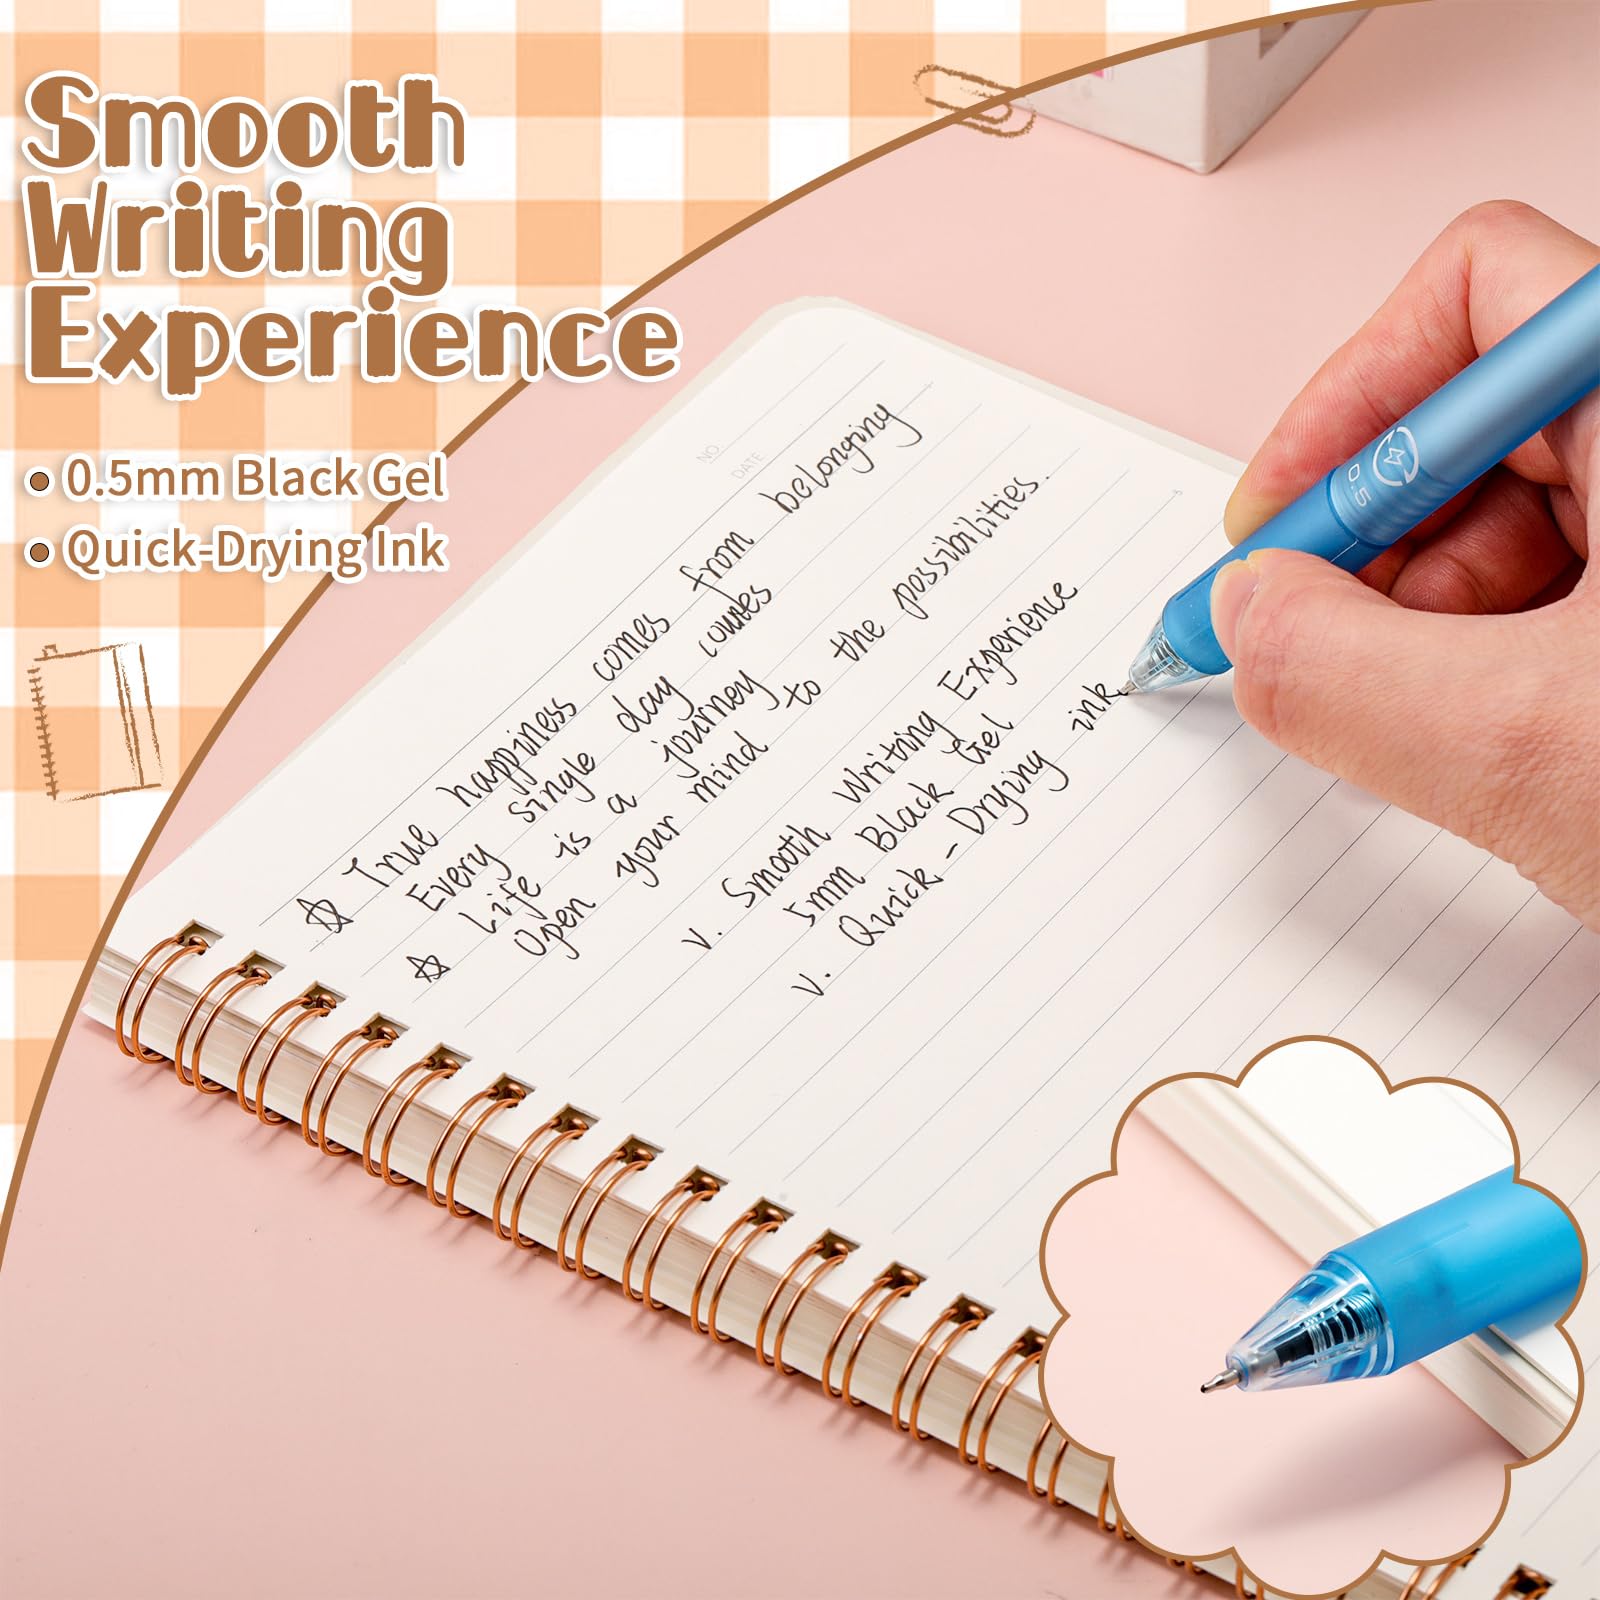 Smooth
Writing
Experience
0.5mm Black Gel
Quick-Drying Ink
NO
DATE
☆ True happiness comes from belonging
Every single day counts
☆ Life is a journey
Open your mind to the possibilities.
V. Smooth Writing Experience
5mm Black Gel
V. Quick-Drying ink
0.5